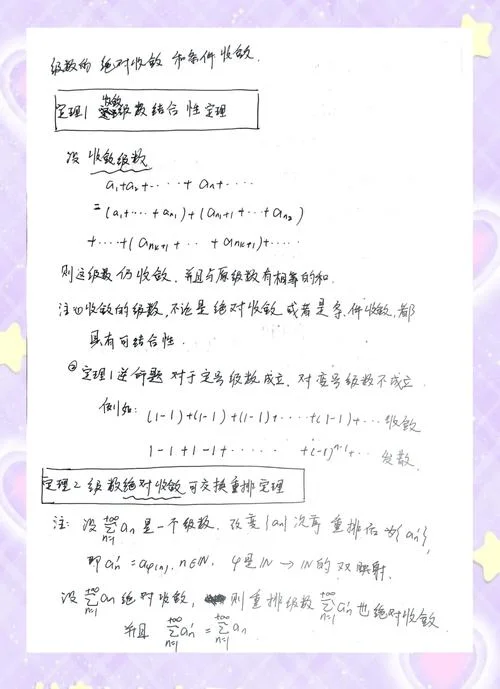 级数的 绝对收敛 和条件收敛.
定理1 收敛级数结合性定理
设 收敛级数
a₁+a₂+·····+ aₙ+····
=(a₁+···+ aₙ₁)+(aₙ₁₊₁+···+aₙ₂)
+····+(aₙₖ₊₁+ ·· +aₙₖ₊₁)+····
则这级数仍收敛.并且与原级数有相等的和.
注①收敛的级数,不论是绝对收敛或者是条件收敛,都
具有可结合性.
②定理1逆命题 对于定号级数成立.对变号级数不成立.
例如: (1-1)+(1-1)+(1-1)+·····+(1-1)+··· 收敛
1-1+1-1+······ +(-1)ⁿ⁻¹+·· 发散.
定理2 级数绝对收敛可交换重排定理
注: 设 +∞∑n=1 aₙ 是一个级数. 改变{aₙ}次序 重排后为{aₙ'},
即 aₙ'=aφ(n). n∈IN. φ是IN→IN的双映射.
设 +∞∑n=1 aₙ 绝对收敛, 则重排级数 +∞∑n=1 aₙ' 也绝对收敛
并且 +∞∑n=1 aₙ' = +∞∑n=1 aₙ